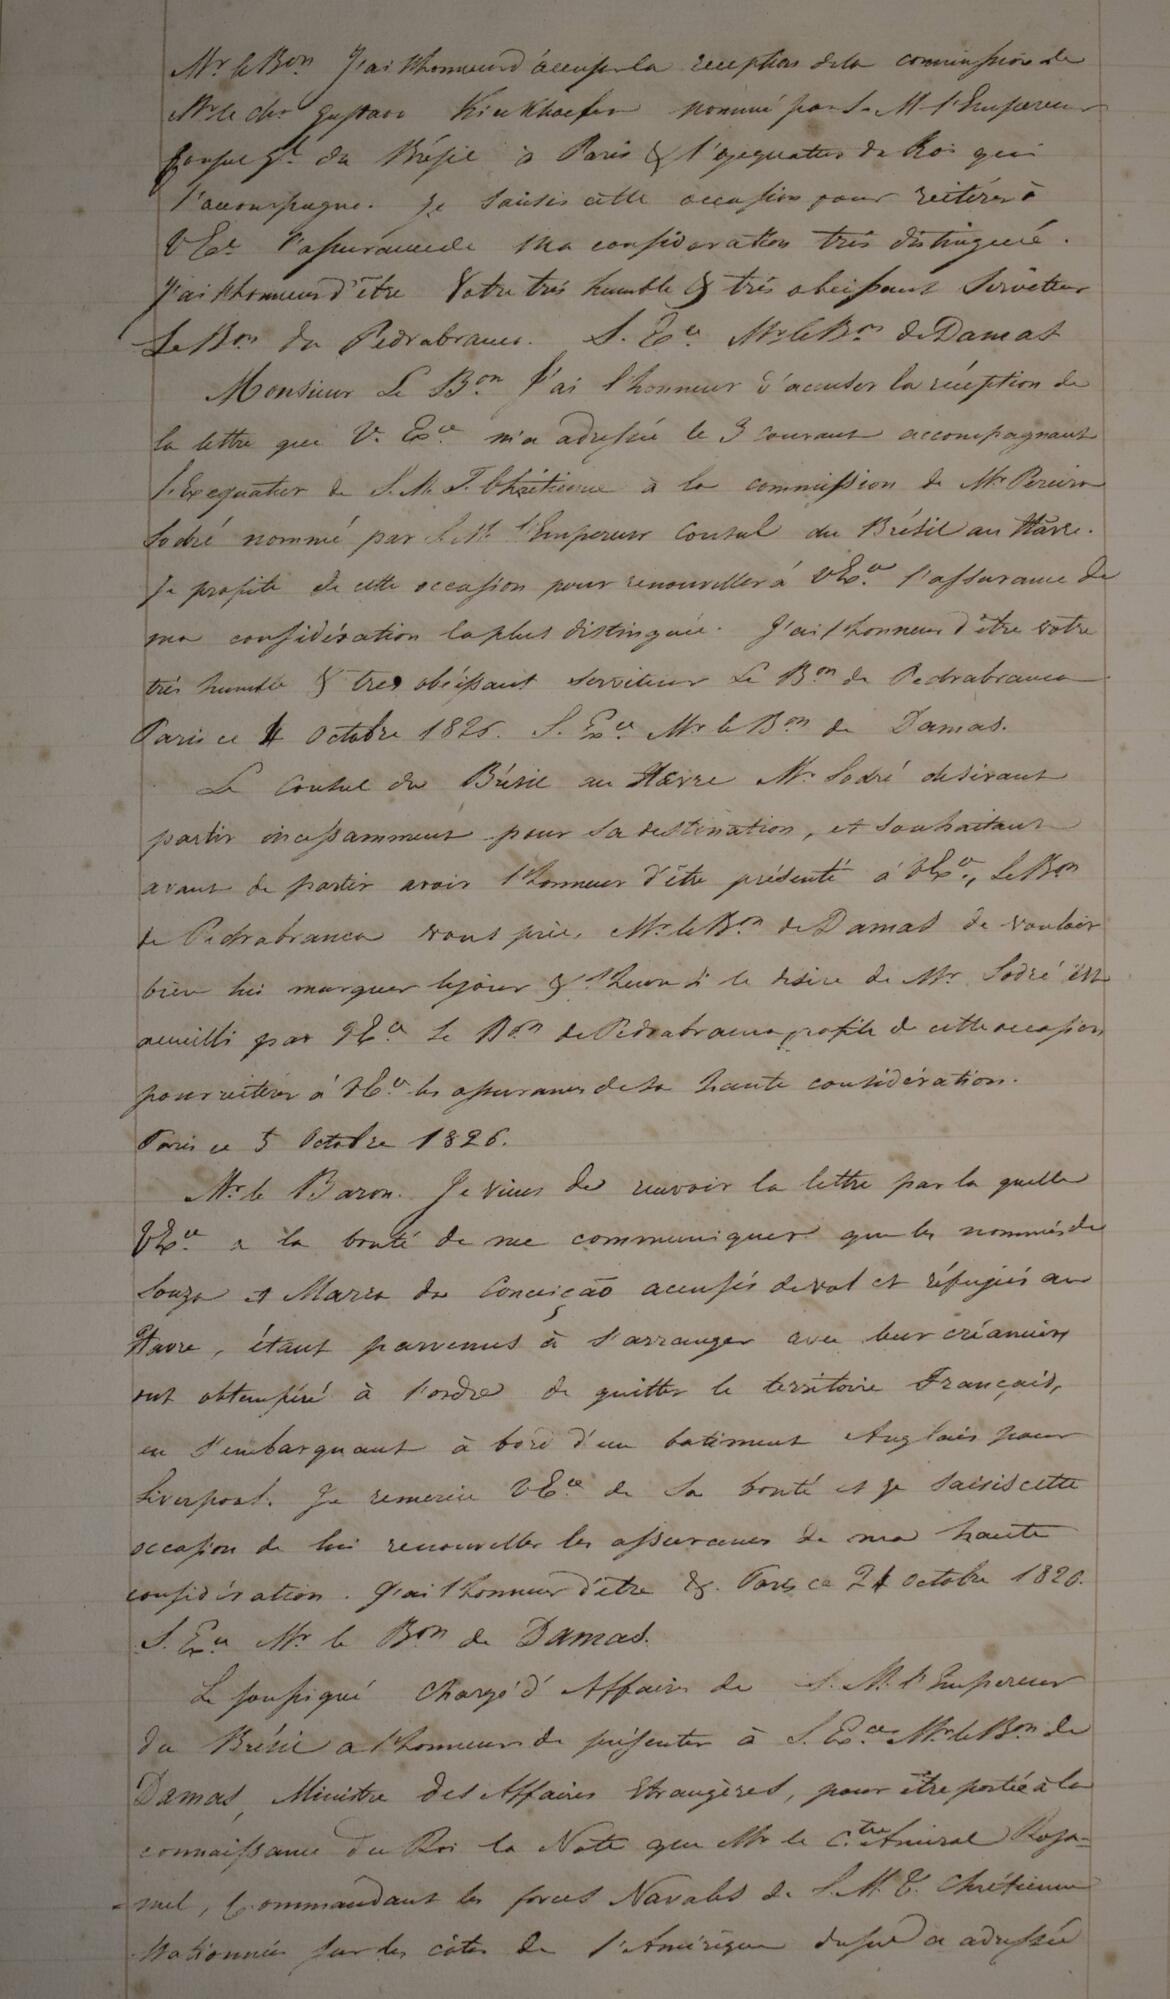 Mr. le Bon. J'ai l'honneur d'accuser la reception de la commission de
Mr. le cher Gustave Kieckhoefer nommé par S. M. l'Empereur
Consul gl. du Brésil à Paris & l'exequatur du Roi qui
l'accompagne. Je saisis cette occasion pour reitérer à
V Exe. l'assurance de ma consideration très distinguée.
J'ai l'honneur d'être Votre très humble & très obeissant Serviteur
Le Bon. de Pedrabranca. S. Exce. Mr. le Bon. de Damas
Monsieur Le Bon. J'ai l'honneur d'accuser la réception de
la lettre que V. Exce. m'a adressée le 3 courant accompagnant
l'Exequatur de S. M. T. Chrétienne à la commission de Mr. Pereira
Sodré nommé par S. M. l'Empereur Consul du Brésil au Hâvre.
Je profite de cette occasion pour renouveller à V Exce. l'assurance de
ma considération la plus distinguée. J'ai l'honneur d'être votre
très humble & très obéissant serviteur Le Bon. de Pedrabranca
Paris ce 4 Octobre 1826. S. Exce. Mr. le Bon. de Damas.
Le Consul du Brésil au Havre Mr. Sodré desirant
partir incessamment pour sa destination, et souhaitant
avant de partir avoir l'honneur d'être présenté à V Exce., Le Bon
de Pedrabranca vous prie, Mr. le Bon. de Damas de vouloir
bien lui marquer le jour & l'heure si le desire de Mr. Sodré est
acueilli par V Ece. Le Bon. de Pedrabranca profite de cette occasion
pour reitérer à V Ece. les assurances de sa haute considération.
Paris ce 5 Octobre 1826.
Mr. le Baron. Je viens de recevoir la lettre par la quelle
V Exce. a la bonté de me communiquer que les nommés de
Souza et Maria da Conceição accusés de vol et réfugiés au
Havre, étant parvenus à s'arranger avec leur créanciers
ont obtempéré à l'ordre de quitter le territoire Français,
en s'embarquant à bord d'un batiment Anglais pour
Liverpool. Je remercie V Ece. de sa bonté et je saisis cette
occasion de lui renouveller les assurances de ma haute
considération. J'ai l'honneur d'être &. Paris ce 24 Octobre 1826.
S. Exce. Mr. le Bon. de Damas.
Le soussigné chargé d'Affaires de S. M. l'Empereur
du Brésil a l'honneur de présenter à S. Exce. Mr. le Bon de
Damas, Ministre des Affaires Etrangères, pour être portée à la
connaissance du Roi la Note que Mr. le C.tre Amiral Rosa-
mel, Commandant les forces Navales de S. M. T. Chrétienne
stationnées sur les côtes de l'Amérique du sud a adressée